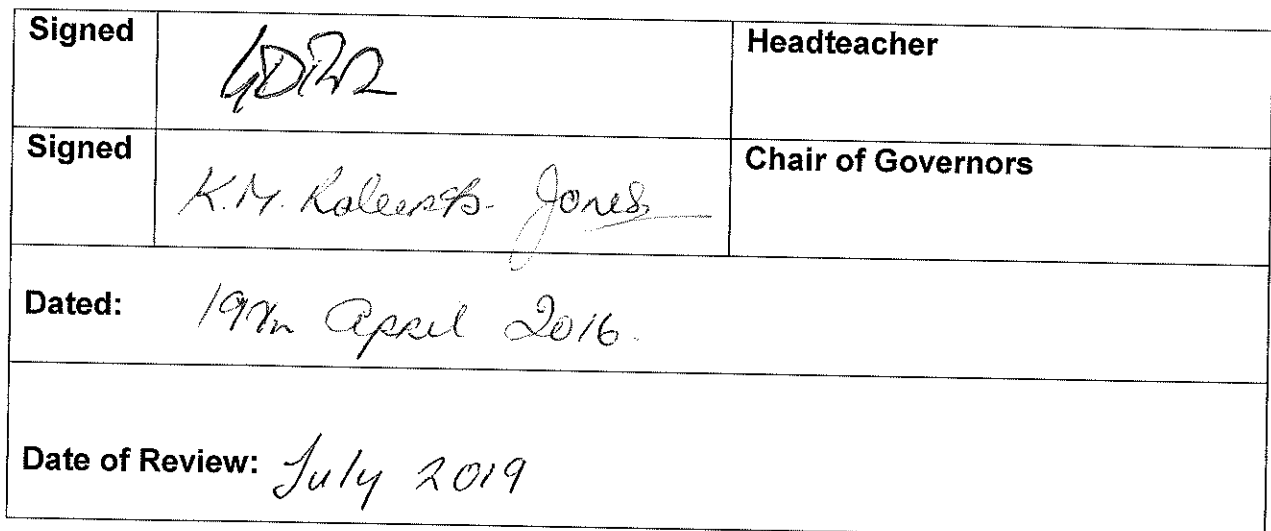 Signed Headteacher
Signed K.M. Roberts-Jones Chair of Governors
Dated: 19th April 2016.
Date of Review: July 2019